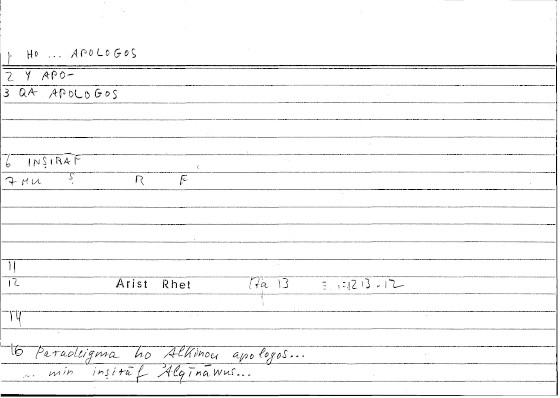 1 HO ... APOLOGOS
2 Y APO-
3 QA APOLOGOS
6 INṢIRĀF
7 MU Ṣ R F
11
12 Arist Rhet 17a 13 = 1213.12
14
16 Paradeigma ho Alkinou apologos...
... min inṣirāf Alqīnāwus...